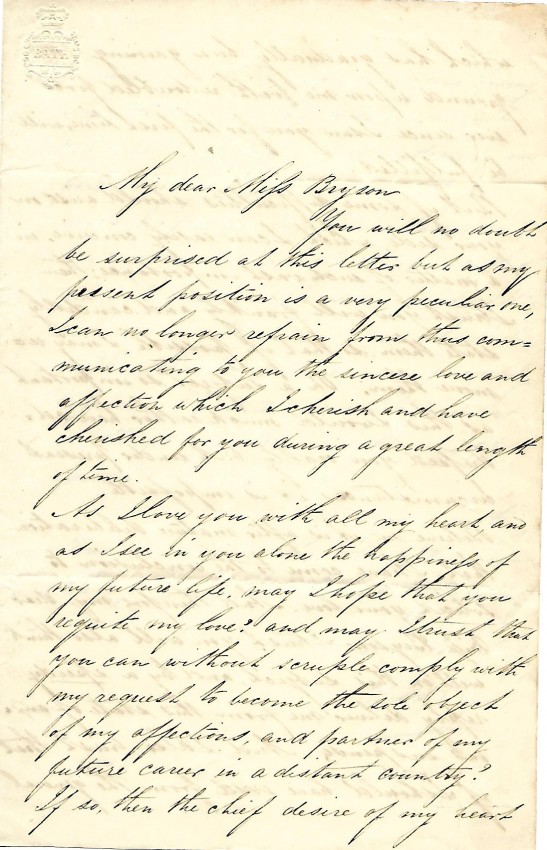 My dear Miss Bryson
You will no doubt
be surprised at this letter but as my
present position is a very peculiar one,
I can no longer refrain from thus com=
municating to you the sincere love and
affection which I cherish and have
cherished for you during a great length
of time.
As I love you with all my heart, and
as I see in you alone the happiness of
my future life, may I hope that you
requite my love? and may I trust that
you can without scruple comply with
my request to become the sole object
of my affections, and partner of my
future career in a distant country?
If so, then the chief desire of my heart